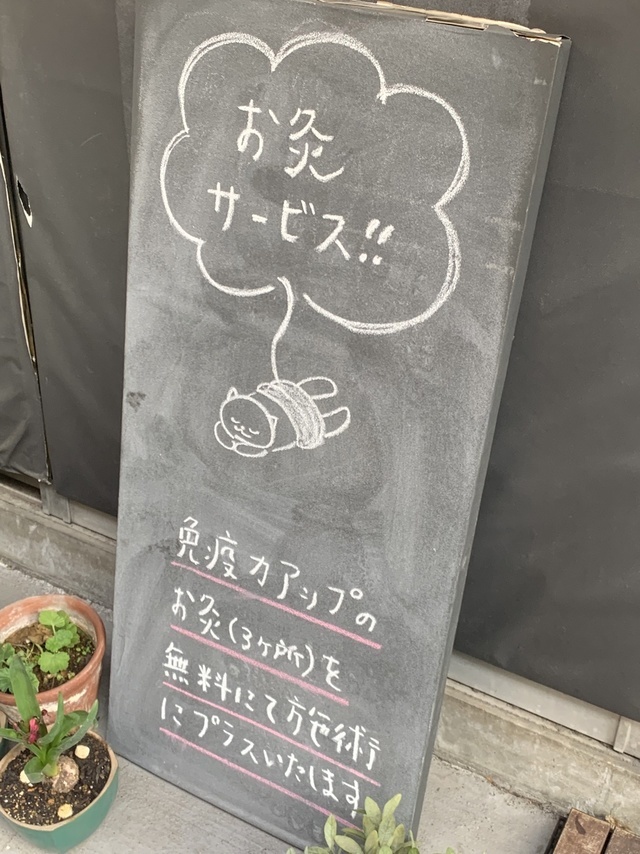 お灸
サービス!!
免疫力アップの
お灸(3ケ所)を
無料にて施術
にプラスいたします